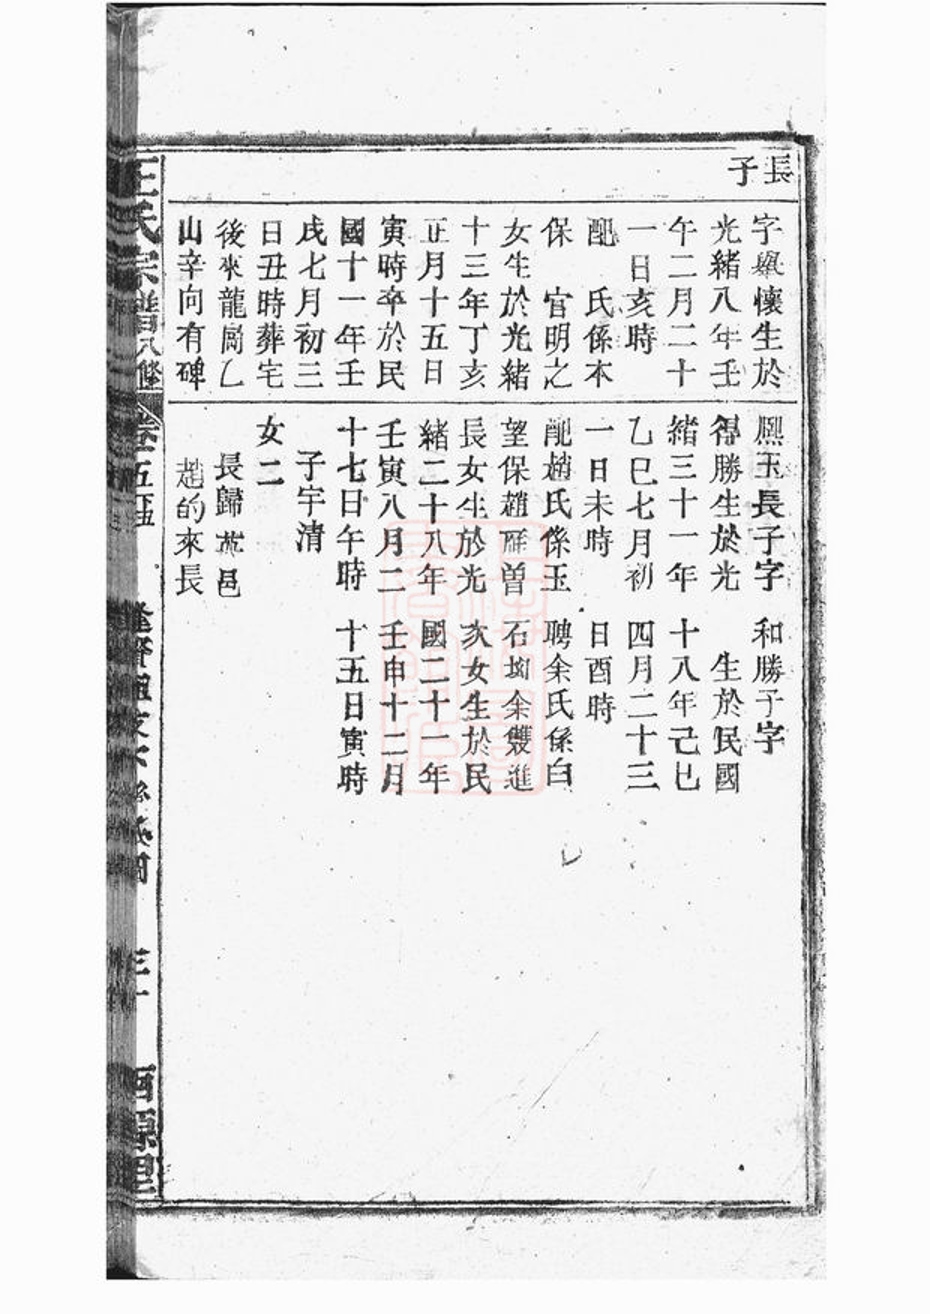 長
子
字舉懷生於
光緒八年壬
午二月二十
一日亥時
配　氏係本
保　官明之
女生於光緒
十三年丁亥
正月十五日
寅時卒於民
國十一年壬
戌七月初三
日丑時葬宅
後來龍崗乙
山辛向有碑
熈玉長子字
得勝生於光
緒三十一年
乙巳七月初
一日未時
配趙氏係玉
望保趙曽
長女生於光
緒二十八年
壬寅八月二
十七日午時
子字清
女二
長歸邑
趙的來長
和勝子字
生於民國
十八年己巳
四月二十三
日酉時
聘余氏係白
石坳余雙進
次女生於民
國二十一年
壬申十二月
十五日寅時
王氏宗譜八修
卷五
三十